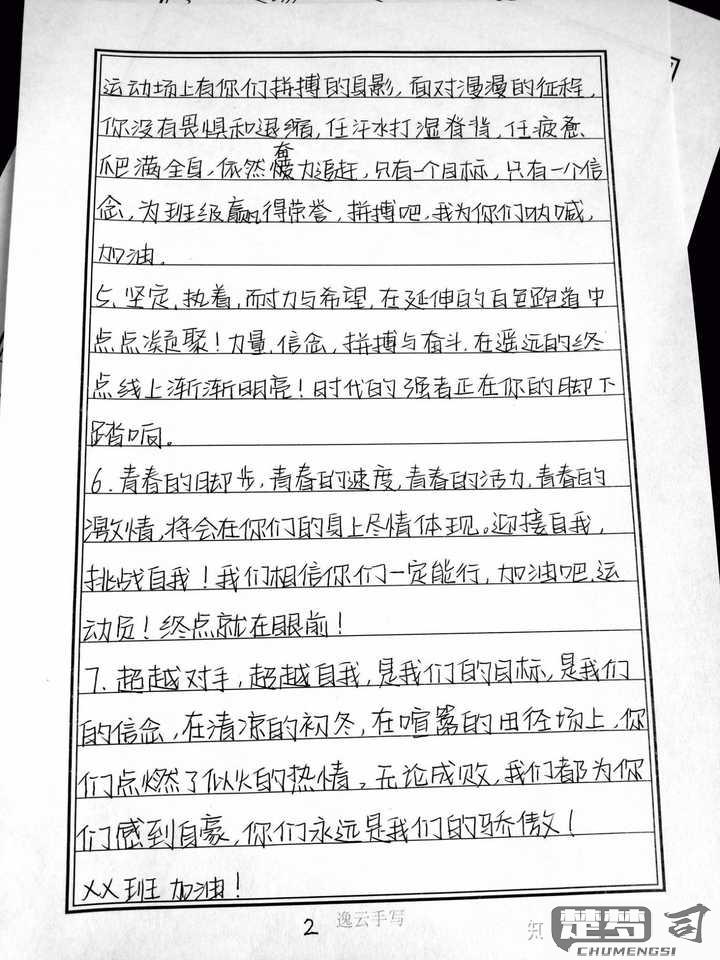 运动场上有你们拼搏的身影,面对漫漫的征程,
你没有畏惧和退缩,任汗水打湿脊背,任疲惫
爬满全身,依然奋力追赶,只有一个目标,只有一个信
念,为班级赢得荣誉,拼搏吧,我为你们呐喊,
加油.
5、坚定,执着,耐力与希望,在延伸的白色跑道中
点点凝聚!力量,信念,拼搏与奋斗,在遥远的终
点线上渐渐明亮!时代的强者正在你的脚下
踏响。
6.青春的脚步,青春的速度,青春的活力,青春的
激情,将会在你们的身上尽情体现。迎接自我,
挑战自我!我们相信你们一定能行,加油吧,运
动员!终点就在眼前!
7.超越对手,超越自我,是我们的目标,是我们
的信念,在清凉的初冬,在喧嚣的田径场上,你
们点燃了似火的热情。无论成败,我们都为你
们感到自豪,你们永远是我们的骄傲!
XX班加油!
2
逸云手写
知
楚梦司
CHUMENGSI